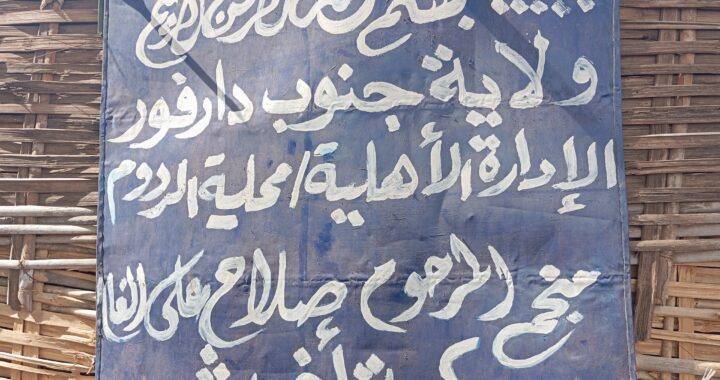 بسم الله الرحمن الرحيم
ولاية جنوب دارفور
الإدارة الأهلية/محلية الردوم
المرحوم صلاح علي الغا